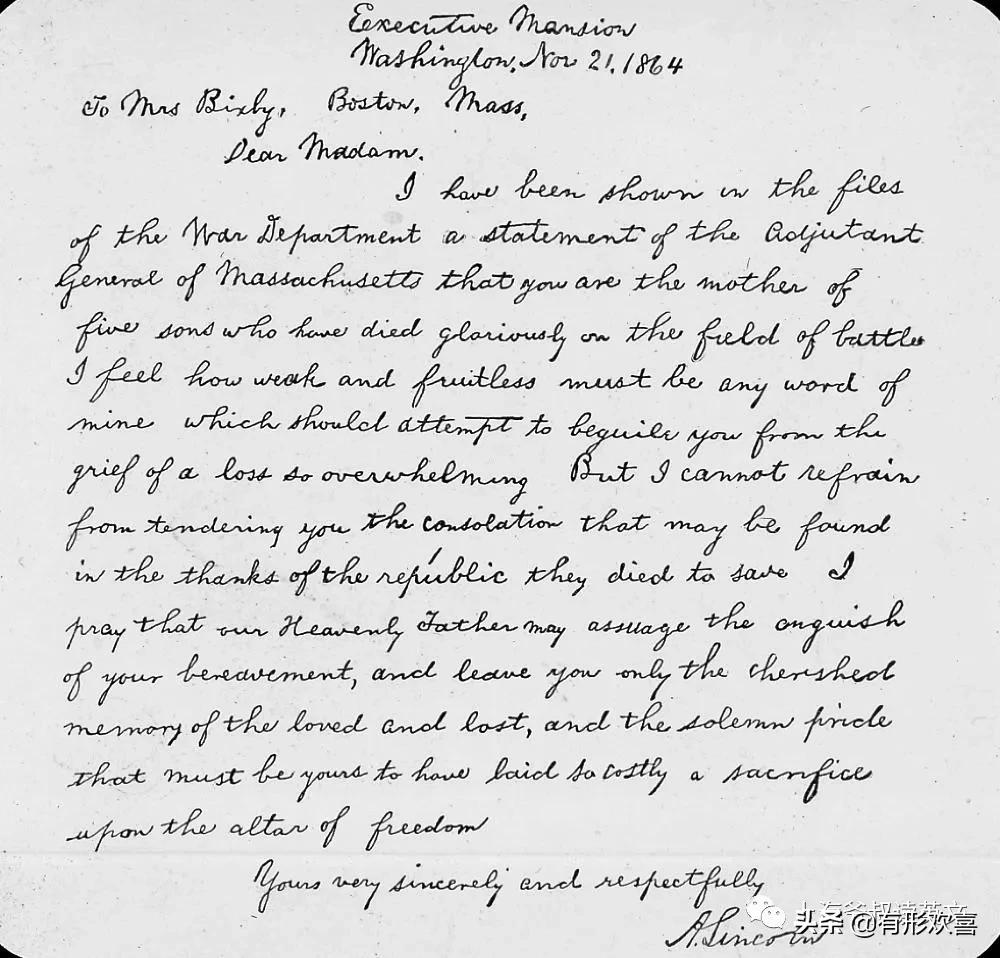 Executive Mansion
Washington, Nov 21, 1864
To Mrs Bixby, Boston, Mass,
Dear Madam.
I have been shown in the files
of the War Department a statement of the Adjutant
General of Massachusetts that you are the mother of
five sons who have died gloriously on the field of battle
I feel how weak and fruitless must be any word of
mine which should attempt to beguile you from the
grief of a loss so overwhelming But I cannot refrain
from tendering you the consolation that may be found
in the thanks of the republic they died to save I
pray that our Heavenly Father may assuage the anguish
of your bereavement, and leave you only the cherished
memory of the loved and lost, and the solemn pride
that must be yours to have laid so costly a sacrifice
upon the altar of freedom
Yours very sincerely and respectfully
A. Lincoln
头条 @有形欢喜